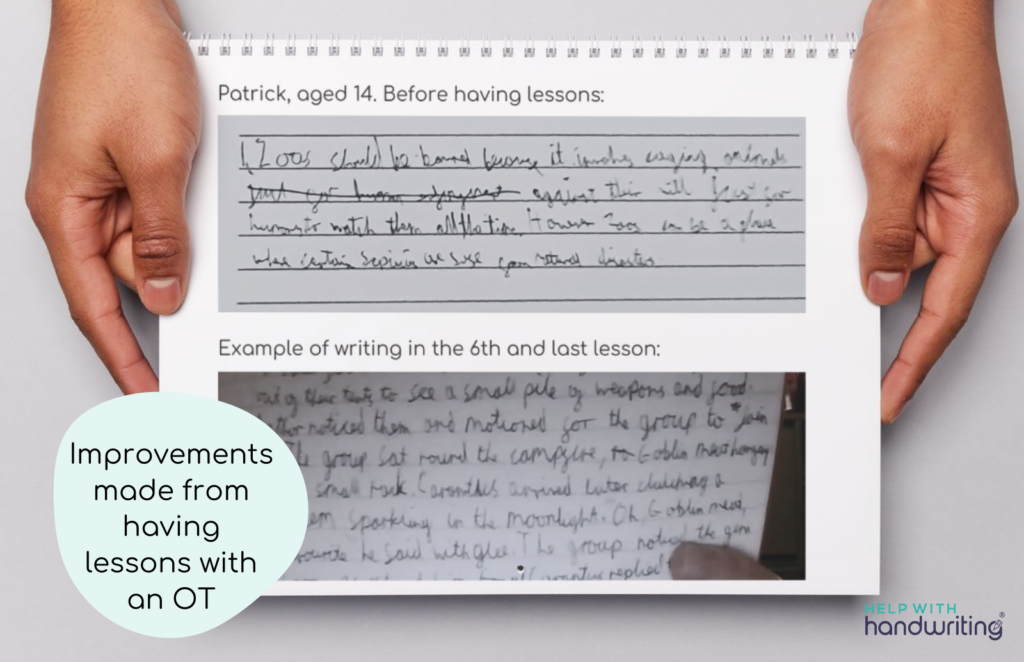 Patrick, aged 14. Before having lessons:
1, Zoos should be banned because it involves caging animals
just for human enjoyment against their will just for
humans to watch them all the time. However zoos can be a place
where certain species are safe from natural disaster.
Example of writing in the 6th and last lesson:
out of their tents to see a small pile of weapons and food.
noticed them and motioned for the group to join
The group sat round the campfire, Goblin meat hanging
small rock. arrived later clutching a
sparkling in the moonlight. Oh, Goblin meat,
he said with glee. The group noticed the gem
replied
Improvements
made from
having
lessons with
an OT
HELP WITH
handwriting®